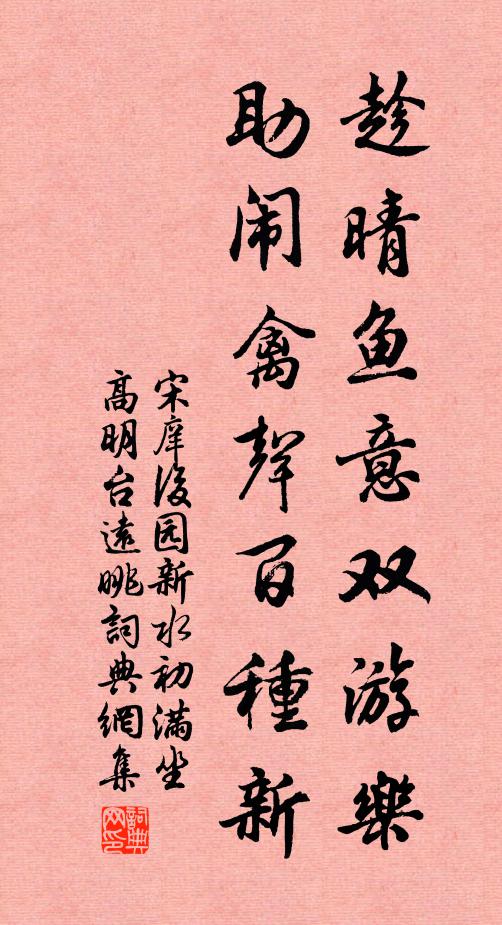 趁晴鱼意双游樂
助闹禽聲百種新
宋庠後园新水初滿坐
高明台遠眺詞典網集
詞典网印